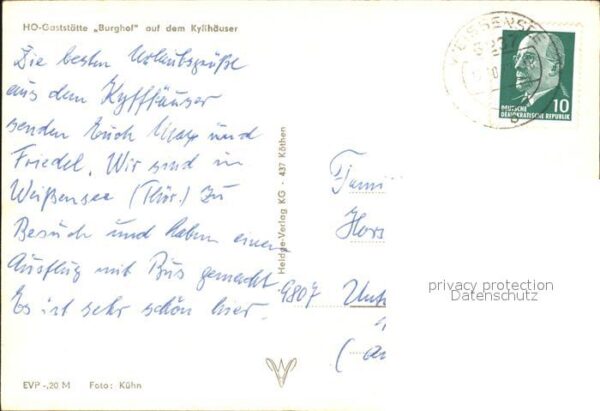 HO-Gaststätte „Burghof" auf dem Kyffhäuser
Die besten Urlaubsgrüße
aus dem Kyffhäuser
senden Euch Max und
Friedel. Wir sind in
Weißensee (Thür.) zu
Besuch und haben einen
Ausflug mit Bus gemacht.
Es ist sehr schön hier.
EVP -,20 M Foto: Kühn
Heldge-Verlag KG - 437 Köthen
WEISSENSEE
10
DEUTSCHE
DEMOKRATISCHE REPUBLIK
Fami
Hors
9807 Unt
privacy protection
Datenschutz